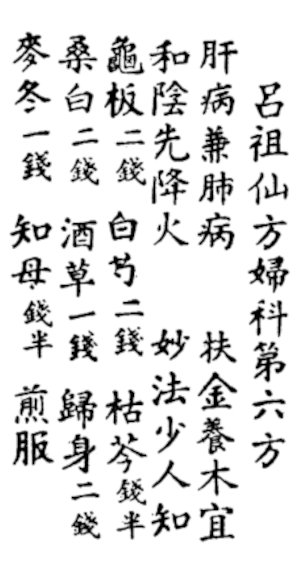 呂祖仙方婦科第六方
肝病兼肺病　扶金養木宜
和陰先降火　妙法少人知
龜板二錢　白芍二錢　枯芩錢半
桑白二錢　酒草一錢　歸身二錢
麥冬一錢　知母錢半　煎服